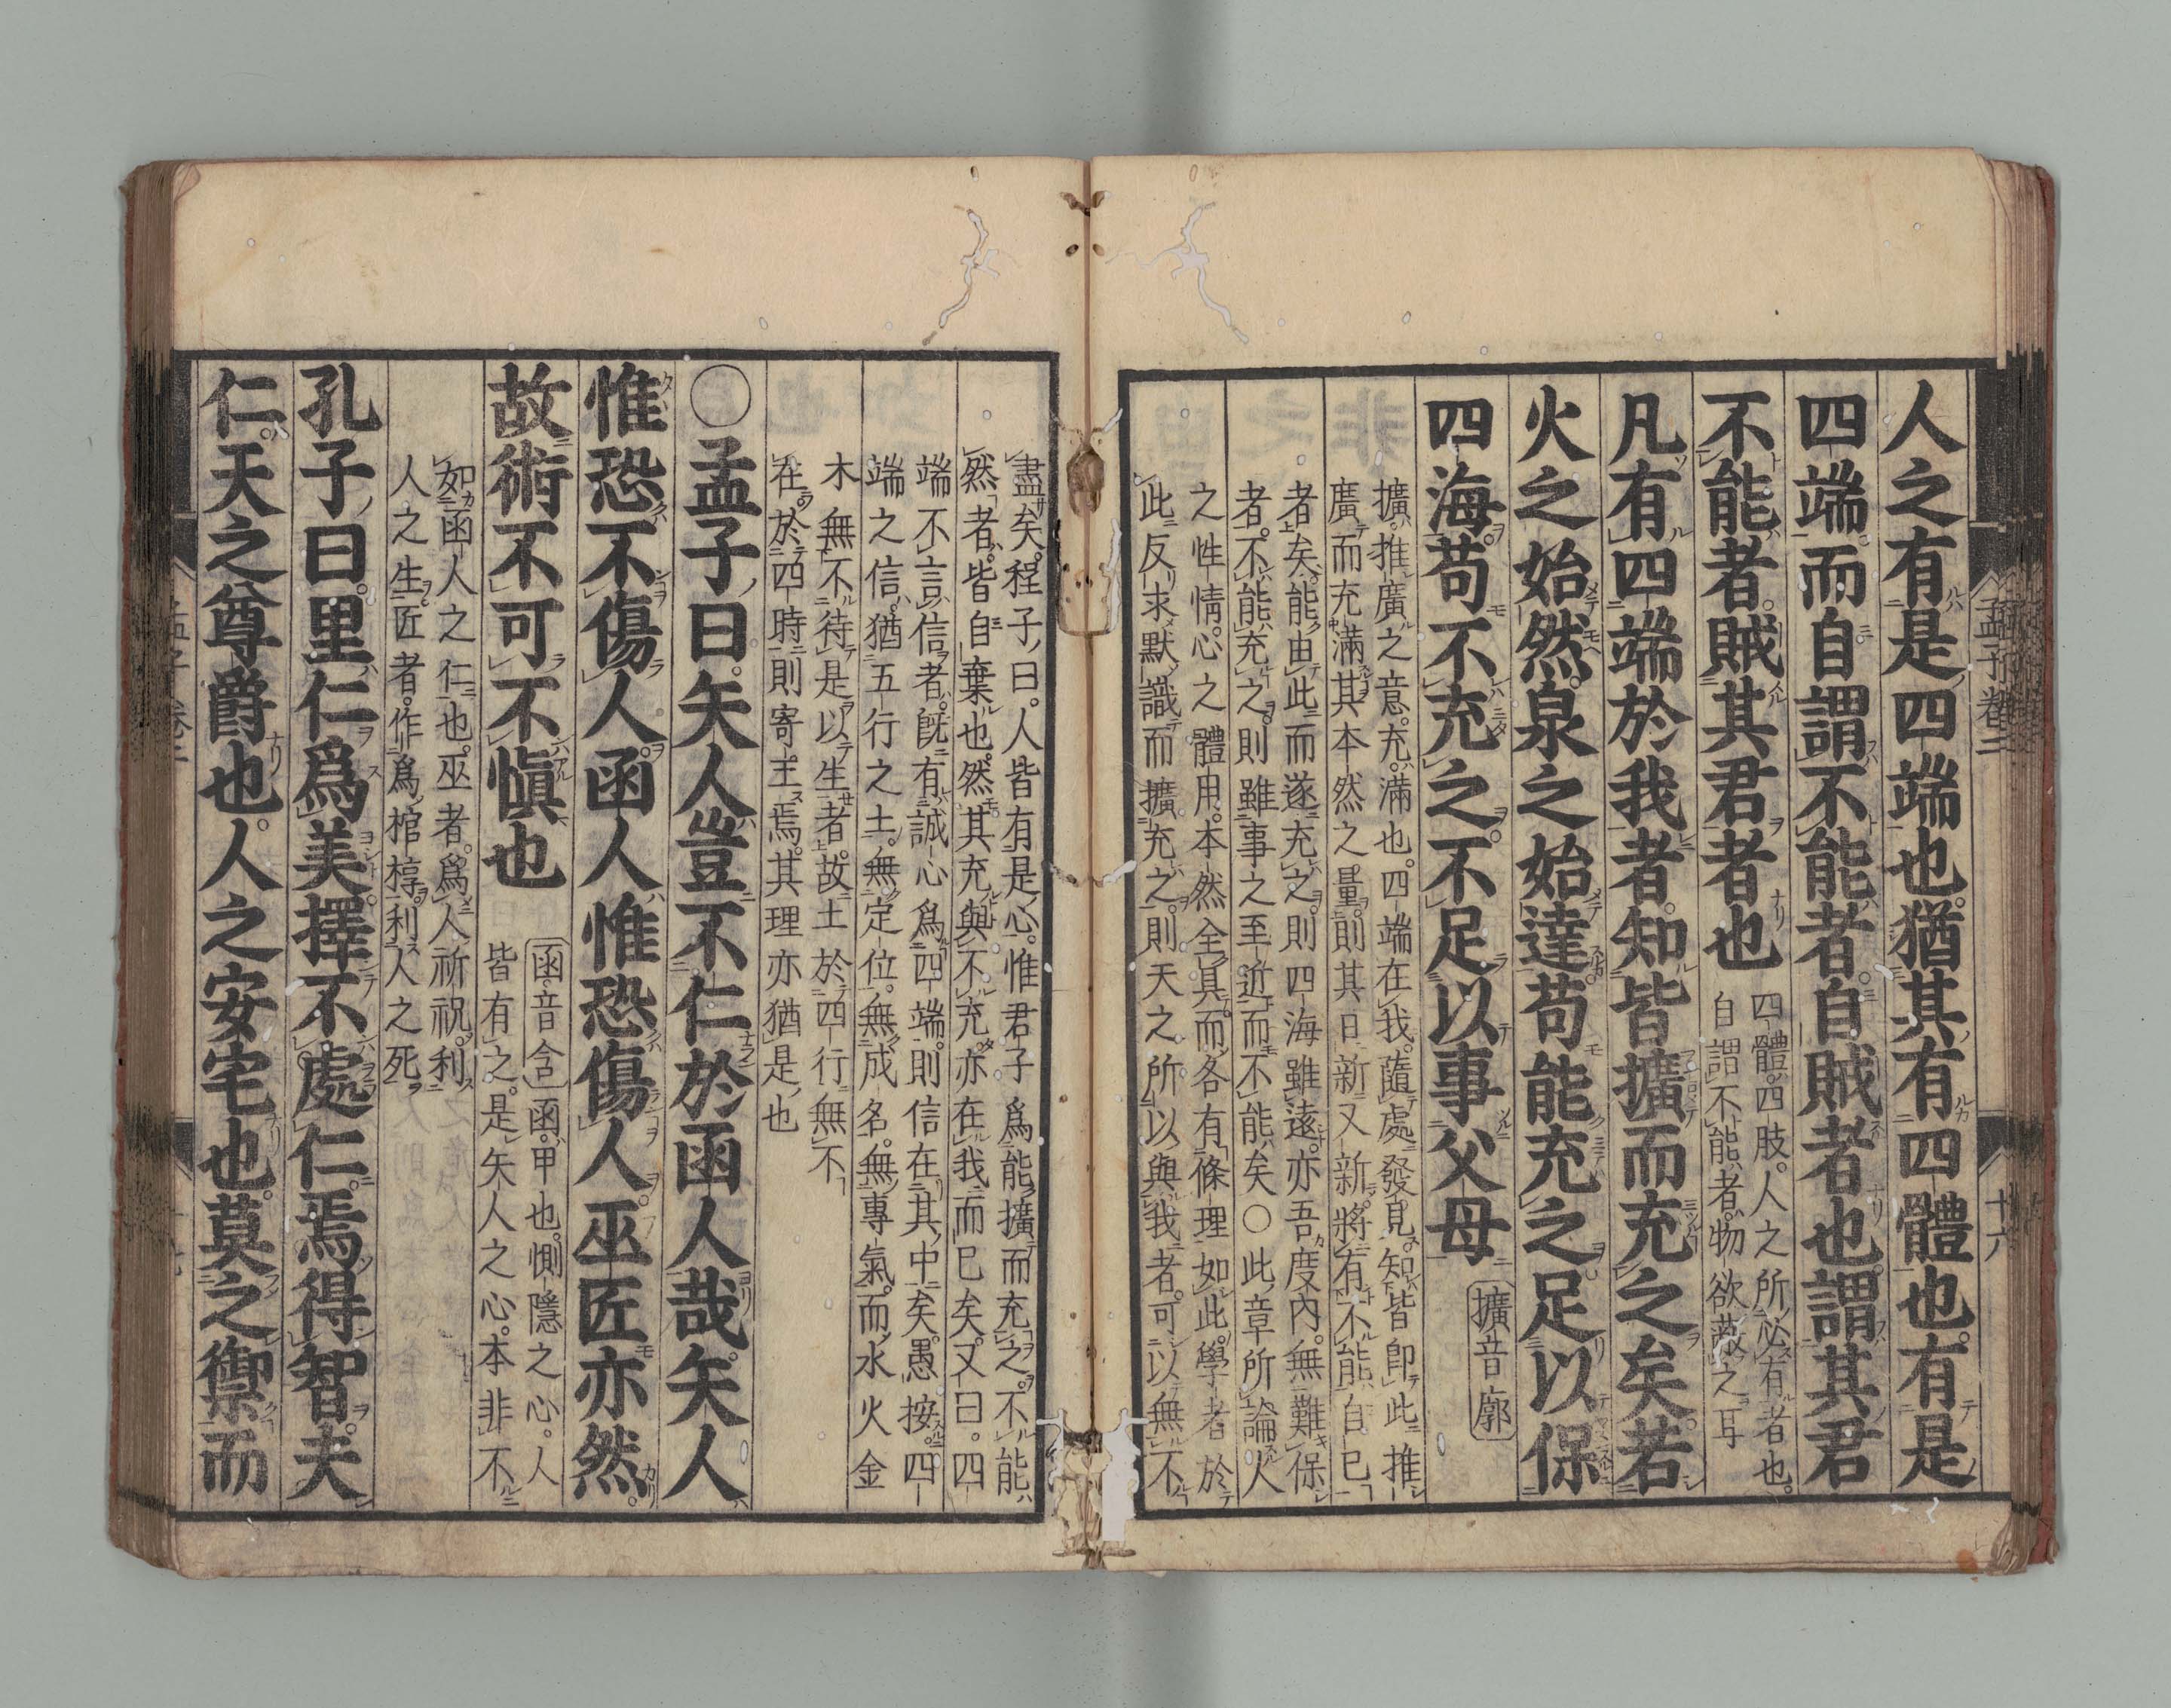 人之有是四端也猶其有四體也有是
四端而自謂不能者自賊者也謂其君
不能者賊其君者也
四體四肢人之所必有者也
自謂不能者物欲蔽之耳
凡有四端於我者知皆擴而充之矣若
火之始然泉之始達苟能充之足以保
四海苟不充之不足以事父母
擴音廓
擴推廣之意充滿也四端在我隨處發見知皆即此推
廣而充滿其本然之量則其日新又新將有不能自已
者矣能由此而遂充之則四海雖遠亦吾度內無難保
者不能充之則雖事之至近而不能矣○此章所論人
之性情心之體用本然全具而各有條理如此學者於
此反求默識而擴充之則天之所以與我者可以無不
孟子卷二
十六
盡矣程子曰人皆有是心惟君子爲能擴而充之不能
然者皆自棄也然其充與不充亦在我而已矣又曰四
端不言信者既有誠心爲四端則信在其中矣愚按四
端之信猶五行之土無定位無成名無專氣而水火金
木無不待是以生者故土於四行無不
在於四時則寄王焉其理亦猶是也
○孟子曰矢人豈不仁於函人哉矢人
惟恐不傷人函人惟恐傷人巫匠亦然
故術不可不愼也
函音含函甲也惻隱之心人
皆有之是矢人之心本非不
如函人之仁也巫者爲人祈祝利
人之生匠者作爲棺椁利人之死
孔子曰里仁爲美擇不處仁焉得智夫
仁天之尊爵也人之安宅也莫之禦而